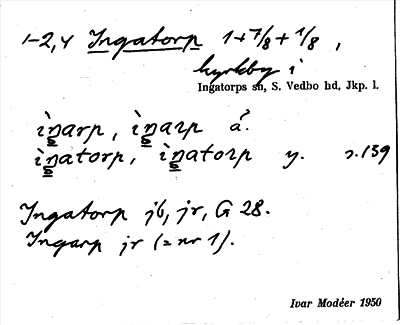 1-2,4 Ingatorp 1+7/8+1/8,
kyrkby i
Ingatorps sn, S. Vedbo hd, Jkp. l.
ìŋarp, ìŋarp ä.
ìŋatorp, ìŋatorp y. s. 139
Ingatorp jb, jr, G 28.
Ingarp jr (= nr 1).
Ivar Modéer 1950